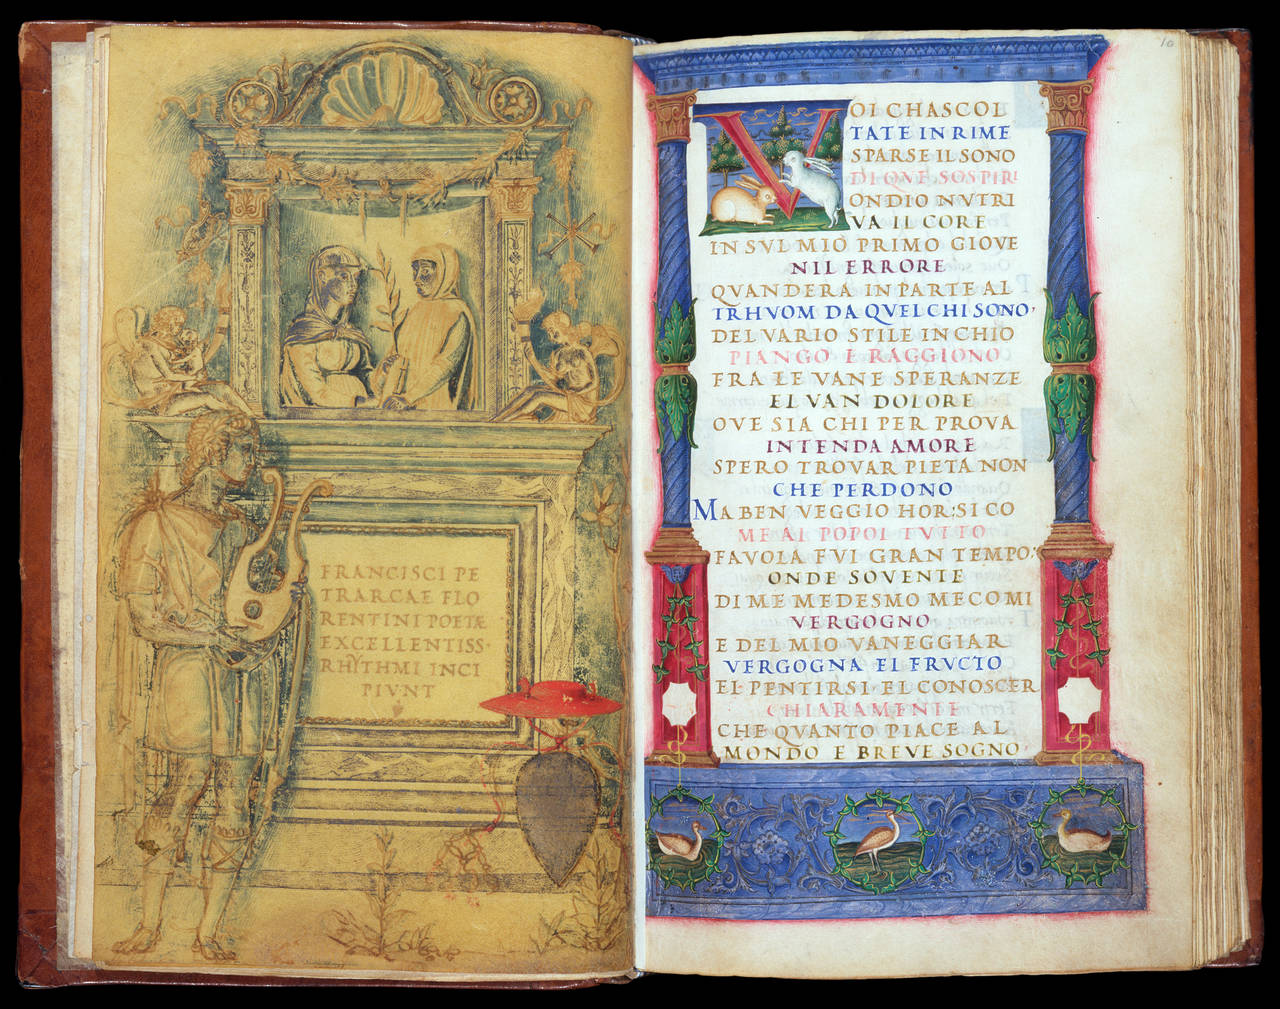 FRANCISCI PE
TRARCAE FLO
RENTINI POETÆ
EXCELLENTISS·
RHYTHMI INCI
PIVNT
10
VOI CHASCOL
TATE IN RIME
SPARSE IL SONO
DI QVE SOSPIRI
ONDIO NVTRI
VA IL CORE
IN SVL MIO PRIMO GIOVE
NIL ERRORE
QVANDERA IN PARTE AL
TRHVOM DA QVEL CHI SONO·
DEL VARIO STILE IN CHIO
PIANGO E RAGGIONO
FRA LE VANE SPERANZE
EL VAN DOLORE
OVE SIA CHI PER PROVA
INTENDA AMORE
SPERO TROVAR PIETA NON
CHE PERDONO
MA BEN VEGGIO HOR: SI CO
ME AL POPOL TVTTO
FAVOLA FVI GRAN TEMPO:
ONDE SOVENTE
DI ME MEDESMO MECO MI
VERGOGNO
E DEL MIO VANEGGIAR
VERGOGNA EL FRVCTO
EL PENTIRSI EL CONOSCER
CHIARAMENTE
CHE QVANTO PIACE AL
MONDO E BREVE SOGNO·